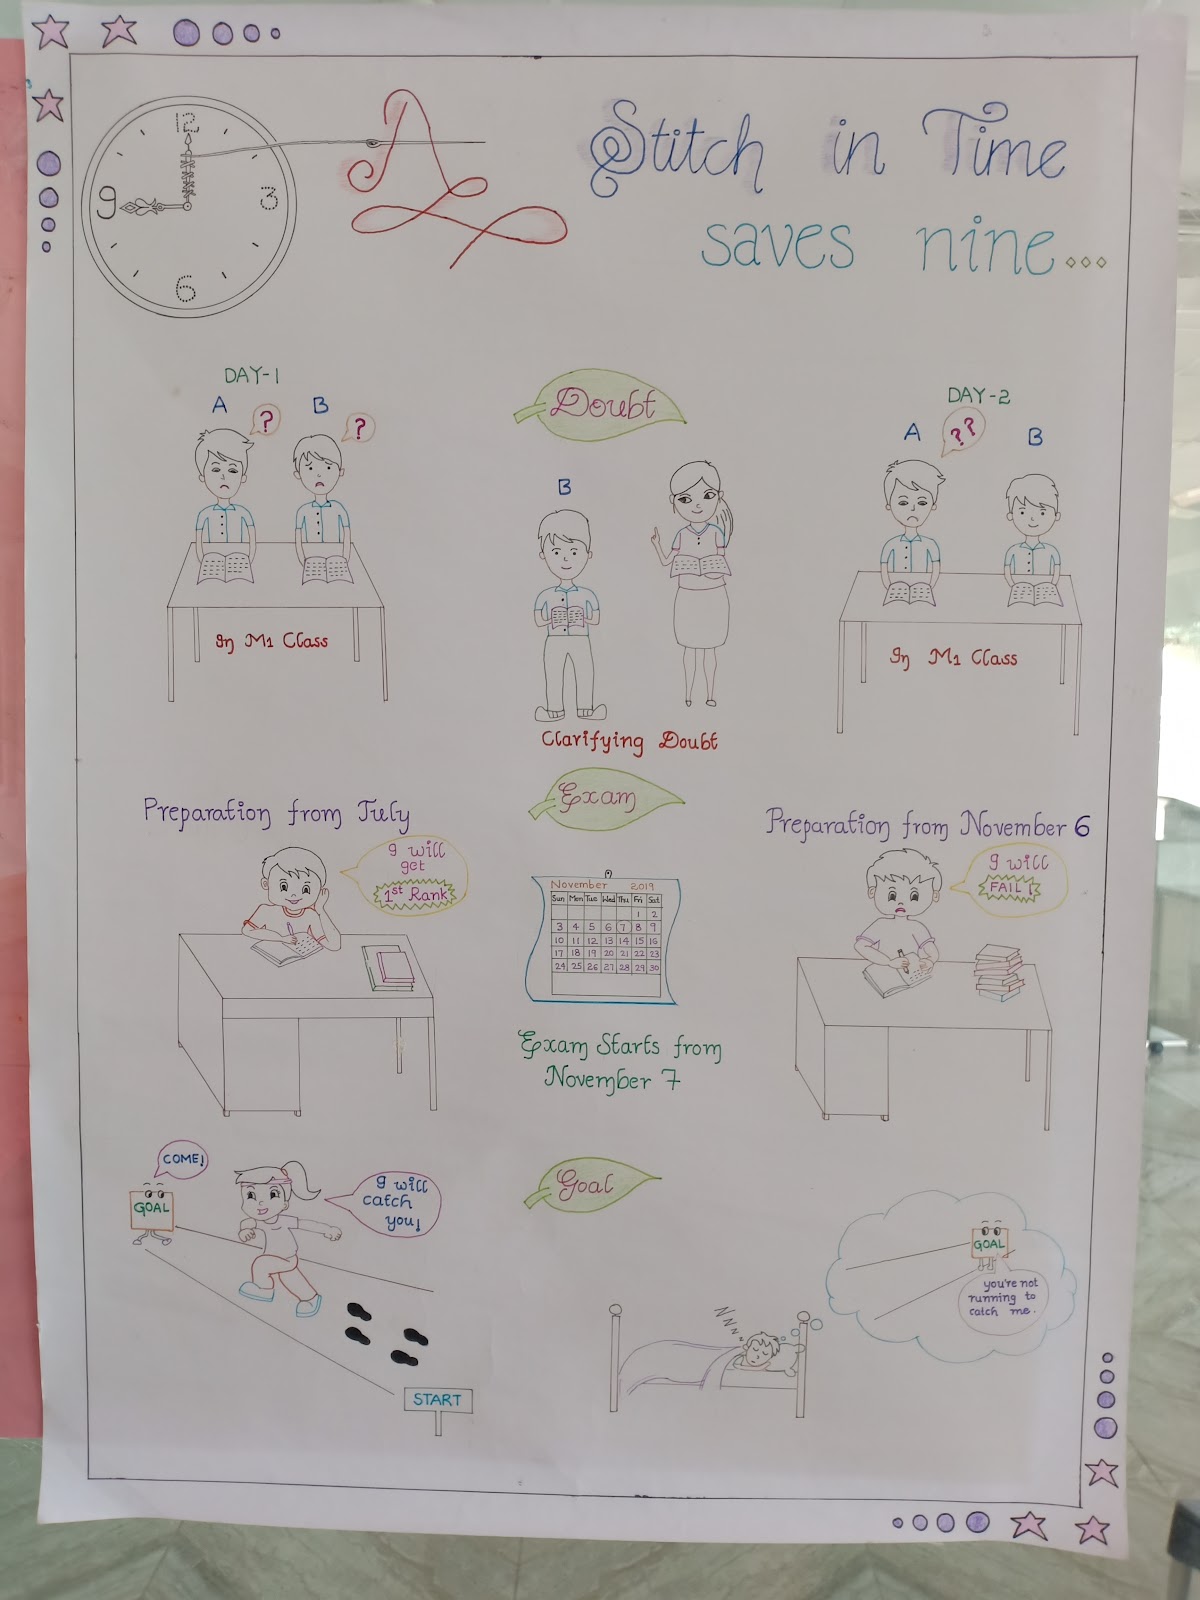 12
3
6
9
A Stitch in Time
saves nine...
DAY-1
A
?
B
?
In M1 Class
Doubt
B
Clarifying Doubt
DAY-2
A
??
B
In M1 Class
Exam
Preparation from July
I will
get
1st Rank
November 2019
Sun Mon Tue Wed Thu Fri Sat
1 2
3 4 5 6 7 8 9
10 11 12 13 14 15 16
17 18 19 20 21 22 23
24 25 26 27 28 29 30
Exam Starts from
November 7
Preparation from November 6
I will
FAIL!
Goal
COME!
GOAL
I will
catch
you!
START
NNNN
GOAL
you're not
running to
catch me.